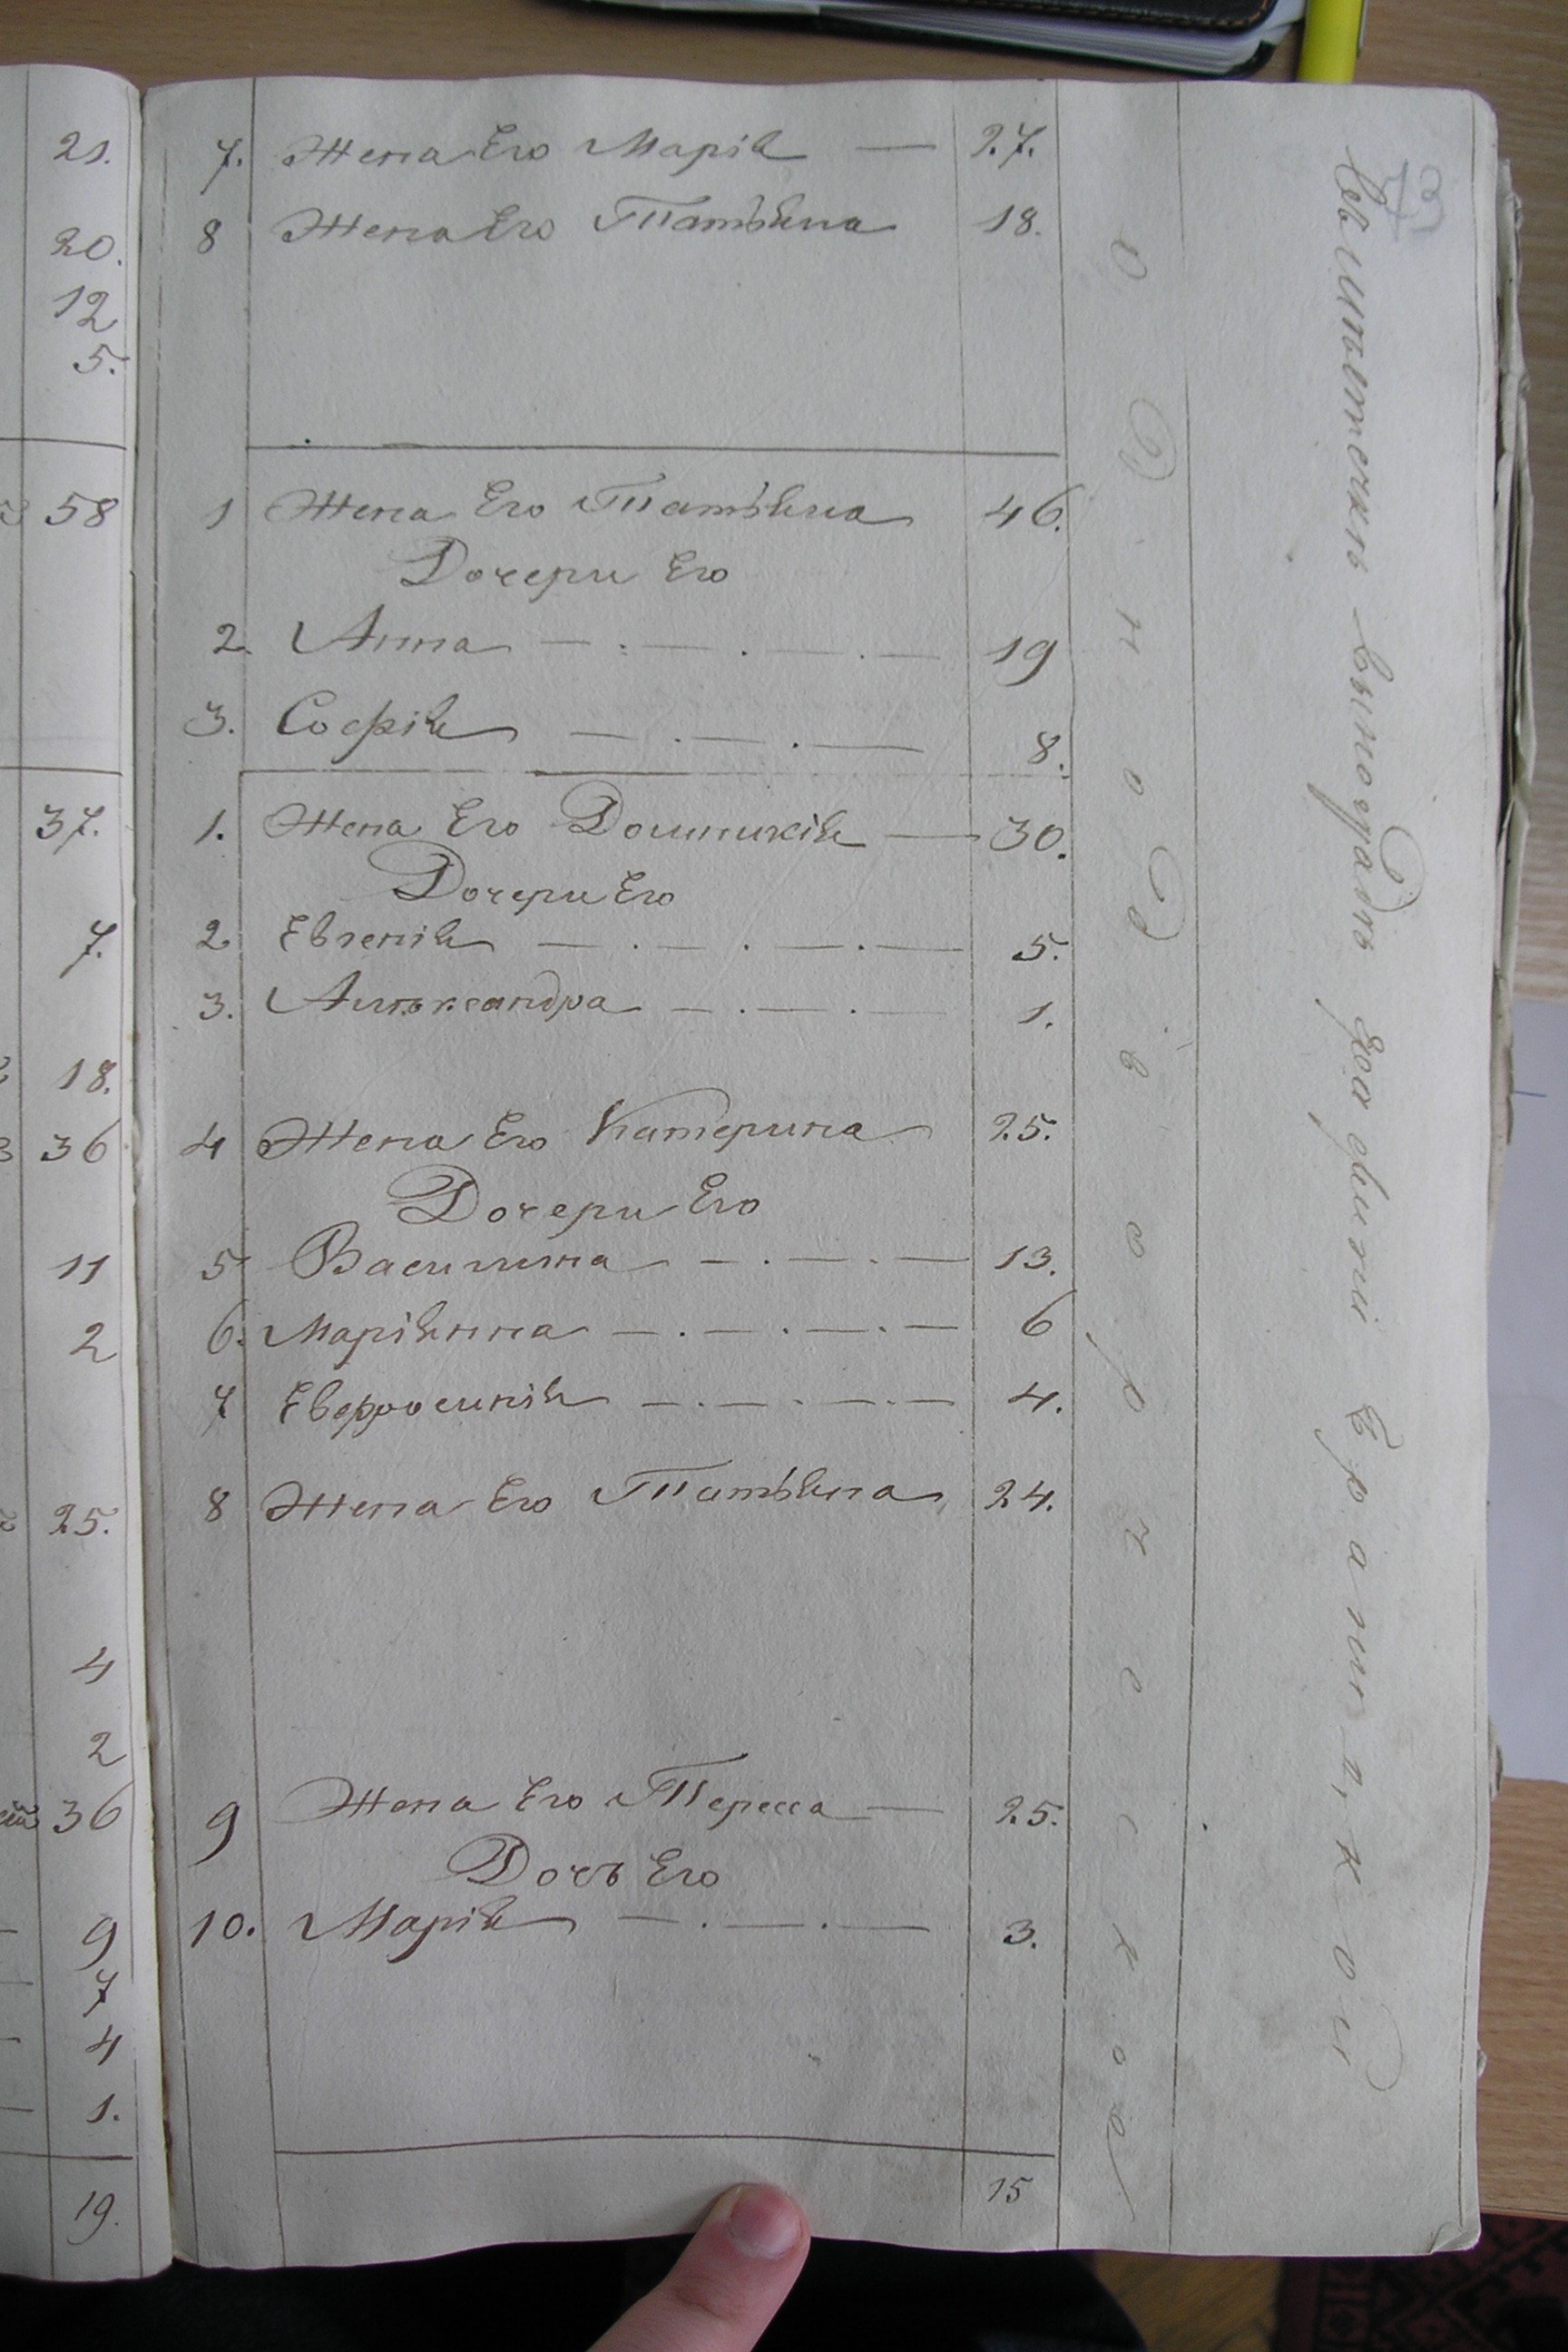 73
21.
20.
12
5.
58
37.
7.
18.
36
11
2
25.
4
2
36
9
7
4
1.
19.
7. Жена Его Марія — 27.
8 Жена Его Татьяна 18.
1 Жена Его Татьяна 46.
Дочери Его
2. Анна — 19
3. Софія — 8.
1. Жена Его Доминикія — 30.
Дочери Его
2 Евгенія — 5.
3. Александра — 1.
4 Жена Его Катерина 25.
Дочери Его
5 Василина — 13.
6. Маріянна — 6
7 Евфросинія — 4.
8 Жена Его Татьяна 24.
9 Жена Его Тересса — 25.
Дочь Его
10. Марія — 3.
15
Однодворческой